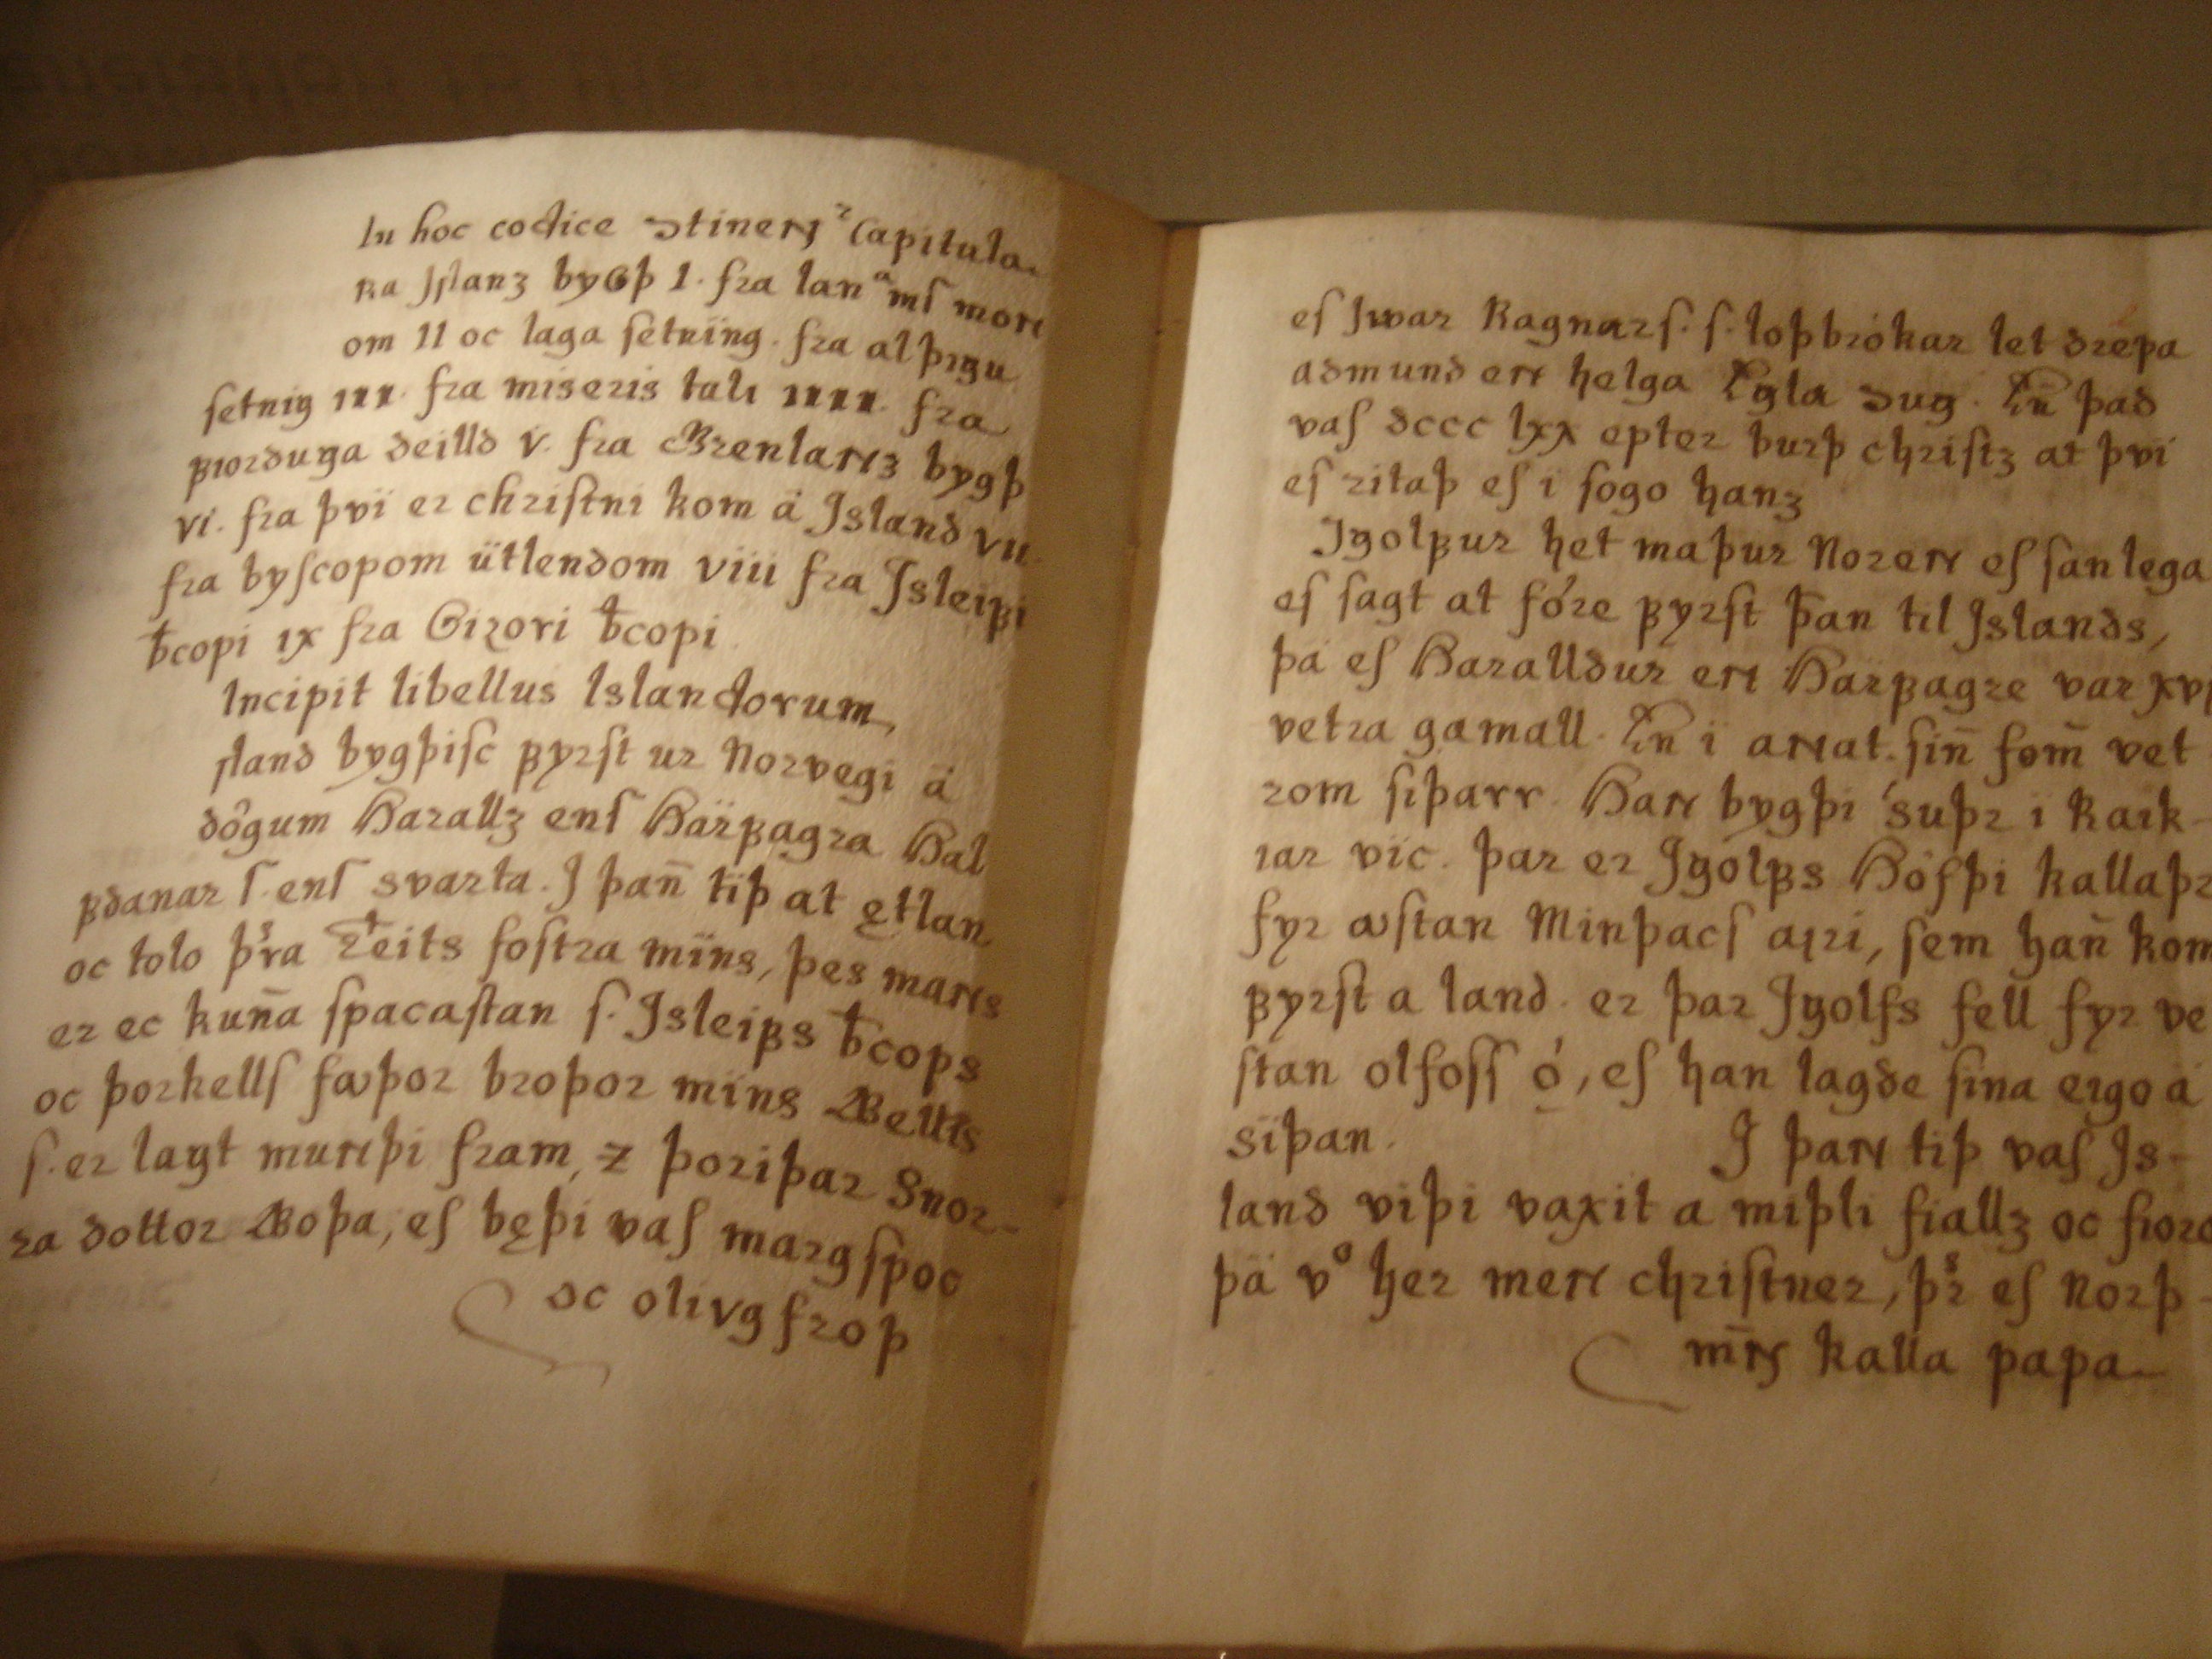 In hoc codice continentur capitula.
Ra Islanz bygþ I. fra lanams monn
om II oc laga setning. fra alþıgıs
setnıg III. fra miseris tali IIII. fra
fıorðuga deilld V. fra Grenlannz bygþ
VI. fra þvi er christni kom ä Island VII.
fra byscopom ütlendom VIII fra Isleifi
bcopi IX fra Gizori bcopi.
Incipit libellus Islandorum,
sland bygþisc fyrst ur Norvegi ä
dôgum Harallz ens Härfagra Hal
fdanar s. ens svarta. I þan̄ tïþ at ętlan
oc tolo þra Teits fostra mïns, þes manns
er ec kun̄a spacastan s. Isleifs bcops
oc þorkells faþor broþor mïns Gellis
s. er langt munþi fram, ⁊ þoriþar Snor-
ra dottor Goþa, es bęþi vas margspoc
oc olivgfroþ
es Ivar Ragnars. s. loþbrókar let drepa
admund enn helga Engla .... En̄ það
vas dccc lxx epter burþ christz at þvï
es ritaþ es ï sogo hanz
Ingolfur het maþur Norenn es sanlega
es sagt at fóre fyrst þan til Islands,
þä es Haralldur enn Härfagre var xvi
vetra gamall. En ï annat. sin̄ fom̄ vet
rom siþarr. Hann bygþi suþr i Raik-
iar vïc. þar er Ingólfs Höfþi kallaþr
fyr austan Minþacs ayri, sem han̄ kom
fyrst a land. er þar Ingolfs fell fyr ve
stan olfoss ǫ́, es han lagðe sina eigo ä
sïþan. I þann tiþ vas Is-
land viþi vaxit a miþli fiallz oc fiord
þä vo her menn christner, þr es Norþ-
menn kalla papa